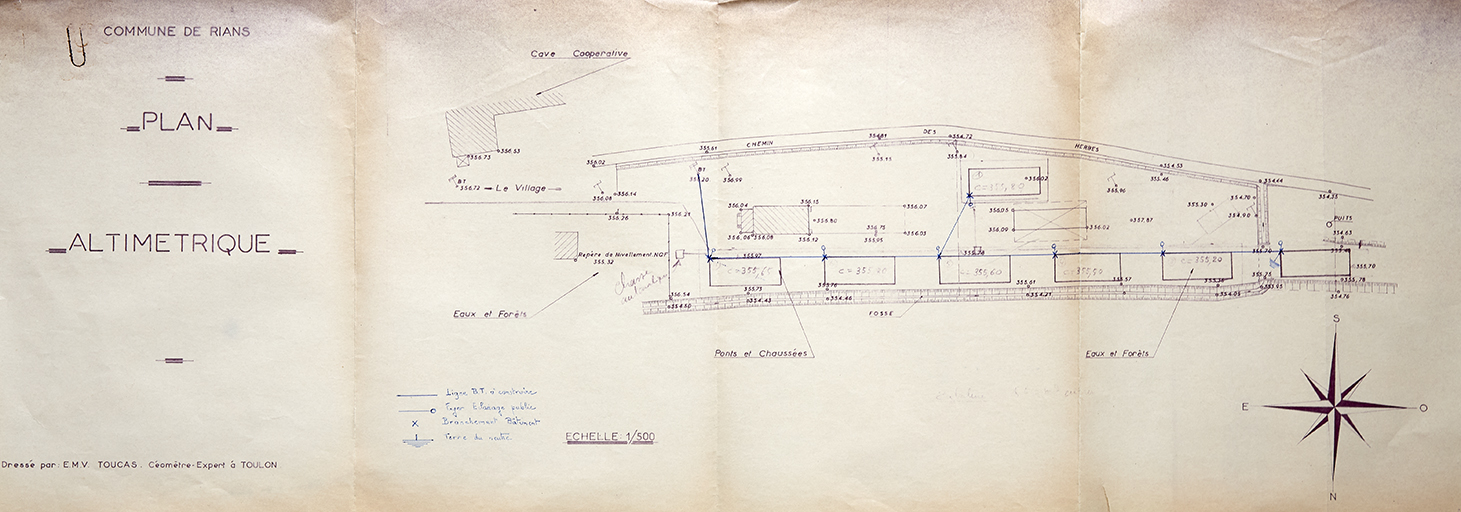 COMMUNE DE RIANS
PLAN
ALTIMETRIQUE
Dressé par: E.M.V. TOUCAS. Géomètre-Expert à TOULON
Cave Cooperative
356.73
356.53
BT
356.72
Le Village
356.02
355.61
CHEMIN
354.81
DES
354.72
HERBES
354.53
354.44
354.35
355.15
355.84
355.46
BT
355.20
356.99
356.08
356.14
356.26
356.21
356.04
356.15
356.80
356.07
356.06
356.08
356.12
356.75
355.95
356.03
C=355,80
356.02
356.05
356.09
356.02
355.96
357.87
355.30
354.70
354.90
PUITS
354.63
Repère de Nivellement NGF
355.32
355.97
C=355,60
C=355,50
C=355,20
355.70
355.75
355.70
355.78
356.54
354.50
355.73
354.43
355.76
354.46
355.61
354.27
355.57
354.05
353.95
354.76
FOSSE
Eaux et Forêts
Ponts et Chaussées
Eaux et Forêts
Ligne B.T. à construire
Foyer Eclairage public
Branchement Bâtiment
Terre du neutre
ECHELLE: 1/500
S
E
O
N